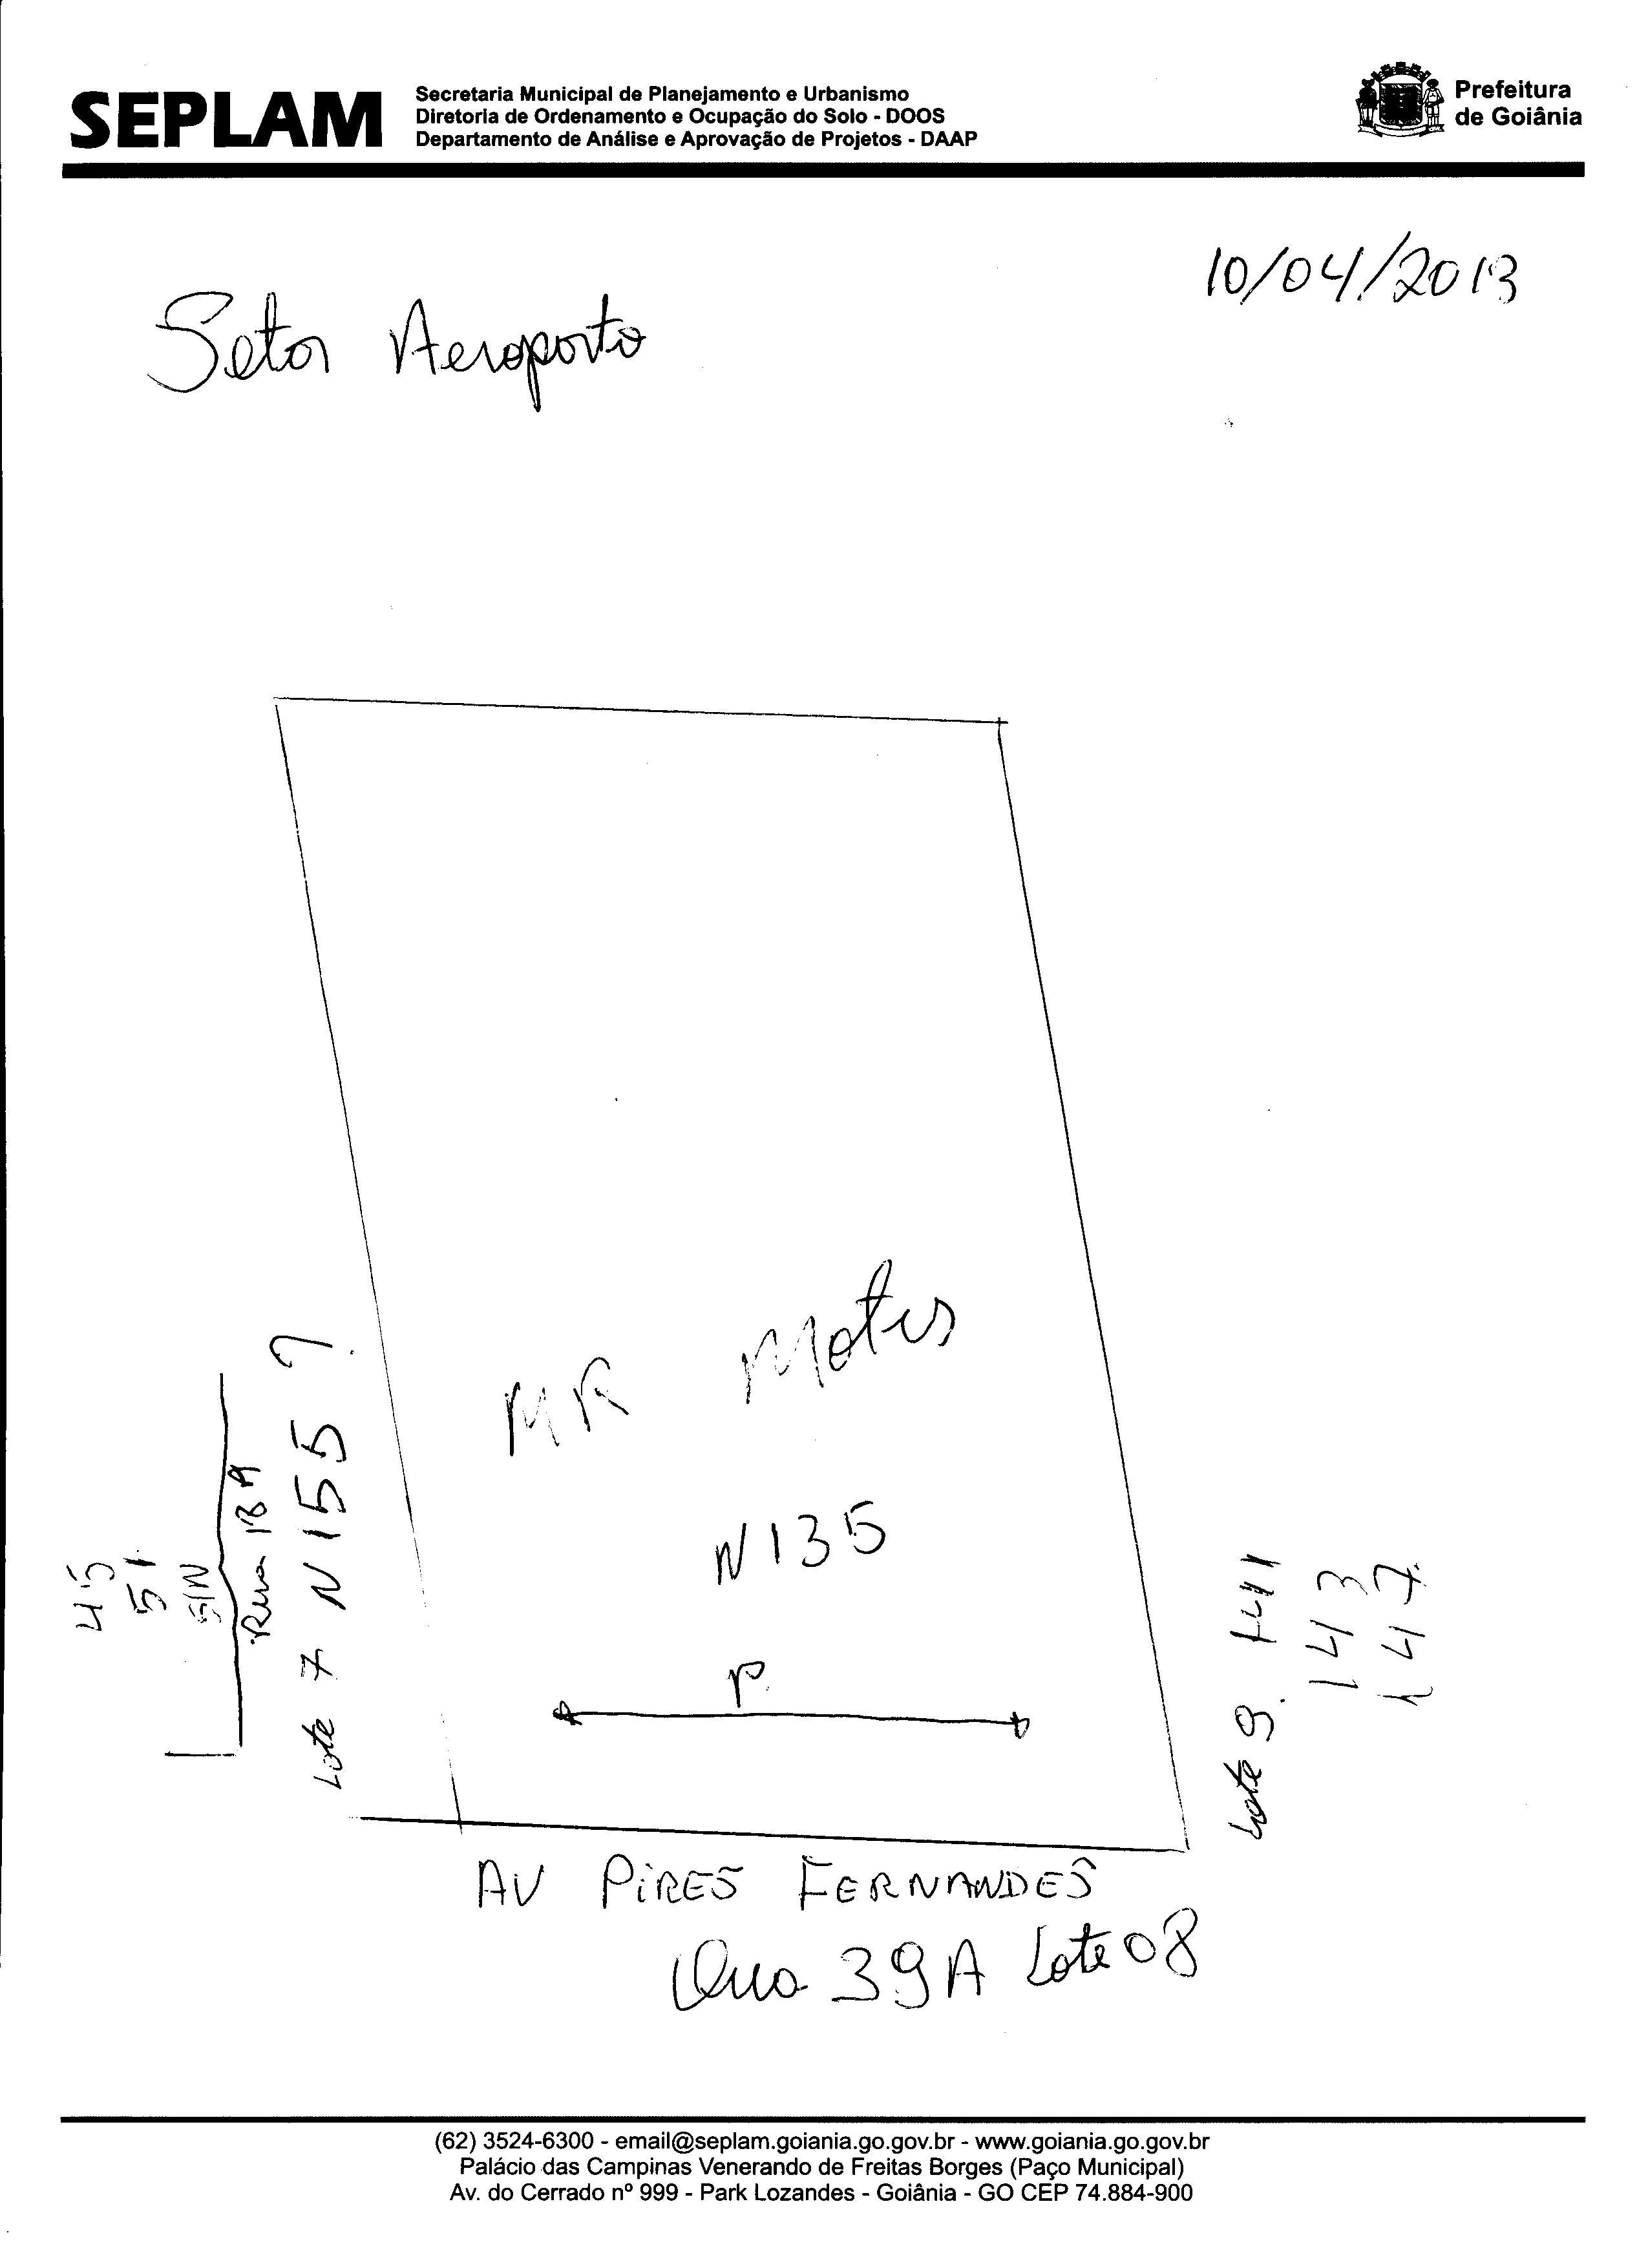 SEPLAM
Secretaria Municipal de Planejamento e Urbanismo
Diretoria de Ordenamento e Ocupação do Solo - DOOS
Departamento de Análise e Aprovação de Projetos - DAAP
Prefeitura
de Goiânia
10/04/2013
Setor Aeroporto
MR Motos
N 135
P
45
51
S/N
Rua 18 A
Lote 7 N 155 ?
Lote 9. 141
143
147
AV PIRES FERNANDES
Qua 39A Lote 08
(62) 3524-6300 - email@seplam.goiania.go.gov.br - www.goiania.go.gov.br
Palácio das Campinas Venerando de Freitas Borges (Paço Municipal)
Av. do Cerrado nº 999 - Park Lozandes - Goiânia - GO CEP 74.884-900